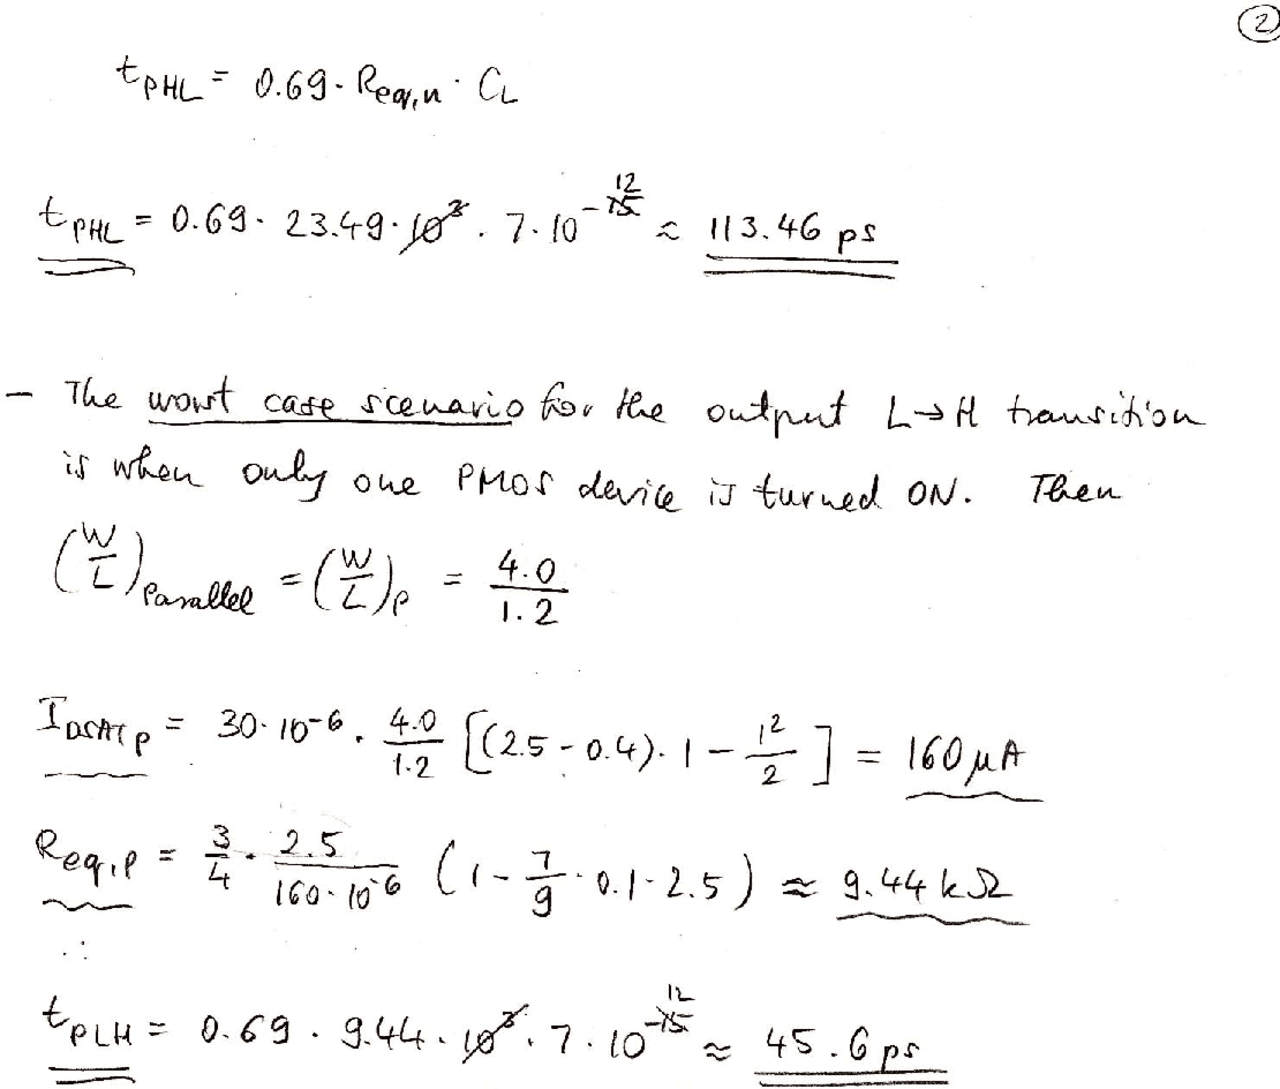 ②
t_PHL = 0.69 · R_eq,n · C_L
t_PHL = 0.69 · 23.49 · 10³ · 7 · 10^-15 12 ≈ 113.46 ps
– The worst case scenario for the output L→H transition
is when only one PMOS device is turned ON. Then
(W/L)_Parallel = (W/L)_P = 4.0/1.2
I_DSATp = 30 · 10^-6 · 4.0/1.2 [(2.5 - 0.4) · 1 - 1²/2] = 160 μA
R_eq,P = 3/4 · 2.5/(160 · 10^-6) (1 - 7/9 · 0.1 · 2.5) ≈ 9.44 kΩ
∴
t_PLH = 0.69 · 9.44 · 10³ · 7 · 10^-15 12 ≈ 45.6 ps